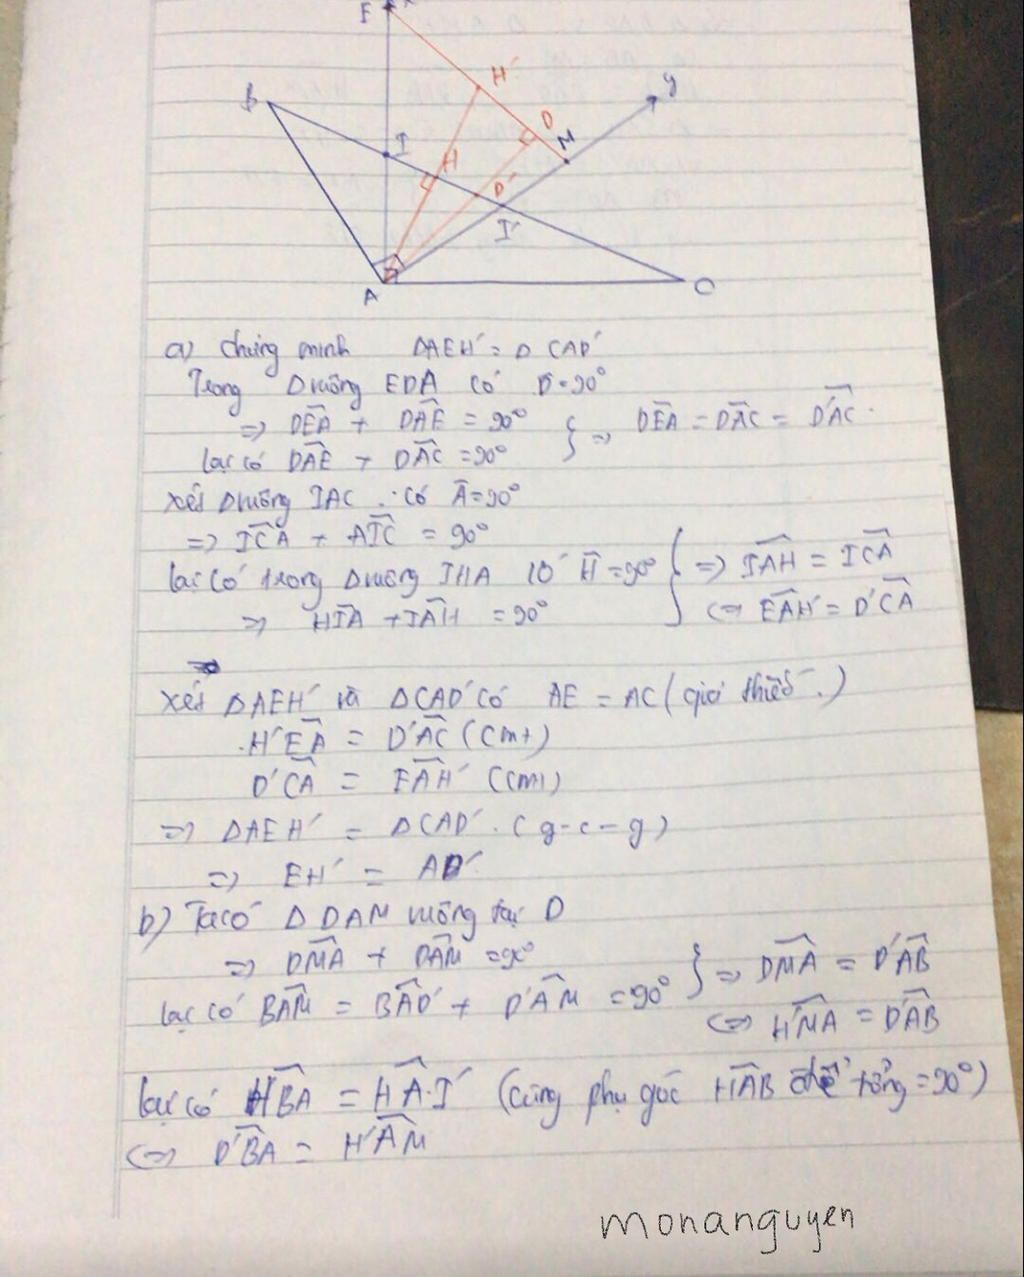 E x
H'
B
y
D
M
I
H
D'
I'
A
C
a) Chứng minh ΔAEH' = Δ CAD'
Trong Δ vuông EDA có D̂ = 90°
=> DÊA + DÂE = 90°
lại có DÂE + DÂC = 90°
} => DÊA = DÂC = D'ÂC.
Xét Δ vuông IAC có Â = 90°
=> IĈA + AÎC = 90°
lại có trong Δ vuông IHA có Ĥ = 90°
=> HÎA + IÂH = 90°
} => IÂH = IĈA
<=> EÂH' = D'ĈA
Xét ΔAEH' và ΔCAD' có AE = AC (giả thiết.)
H'ÊA = D'ÂC (cmt)
D'ĈA = EÂH' (cmt)
=> ΔAEH' = ΔCAD'. (g-c-g)
=> EH' = AD'.
b) Ta có Δ DAM vuông tại D
=> DM̂A + DÂM = 90°
lại có BÂM = BÂD' + D'ÂM = 90°
} => DM̂A = D'ÂB
<=> H'M̂A = D'ÂB
lại có HB̂A = HÂI' (cùng phụ góc HÂB để tổng = 90°)
<=> D'B̂A = H'ÂM
monanguyen